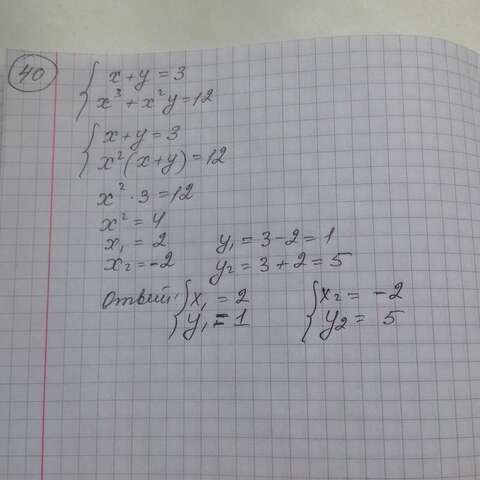 40
x + y = 3
x³ + x²y = 12
x + y = 3
x²(x + y) = 12
x² · 3 = 12
x² = 4
x₁ = 2 y₁ = 3 - 2 = 1
x₂ = -2 y₂ = 3 + 2 = 5
Ответ: { x₁ = 2 { x₂ = -2
y₁ = 1 y₂ = 5